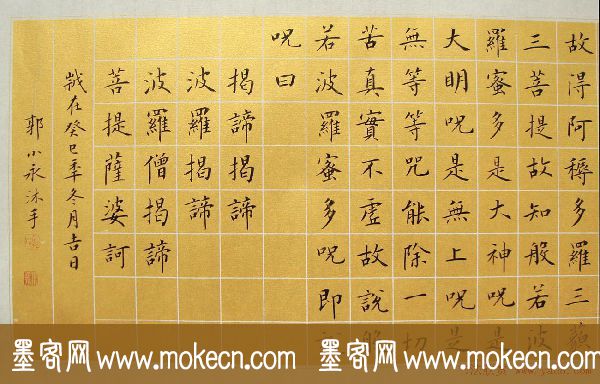 故得阿耨多羅三藐
三菩提故知般若波
羅蜜多是大神呪是
大明呪是無上呪是
無等等咒能除一切
苦真實不虛故說般
若波羅蜜多呪即
呪曰
揭諦揭諦
波羅揭諦
波羅僧揭諦
菩提薩婆訶
歲在癸巳年冬月吉日
郭小永沐手
墨客网 www.mokecn.com 墨客网 www.mokecn.com